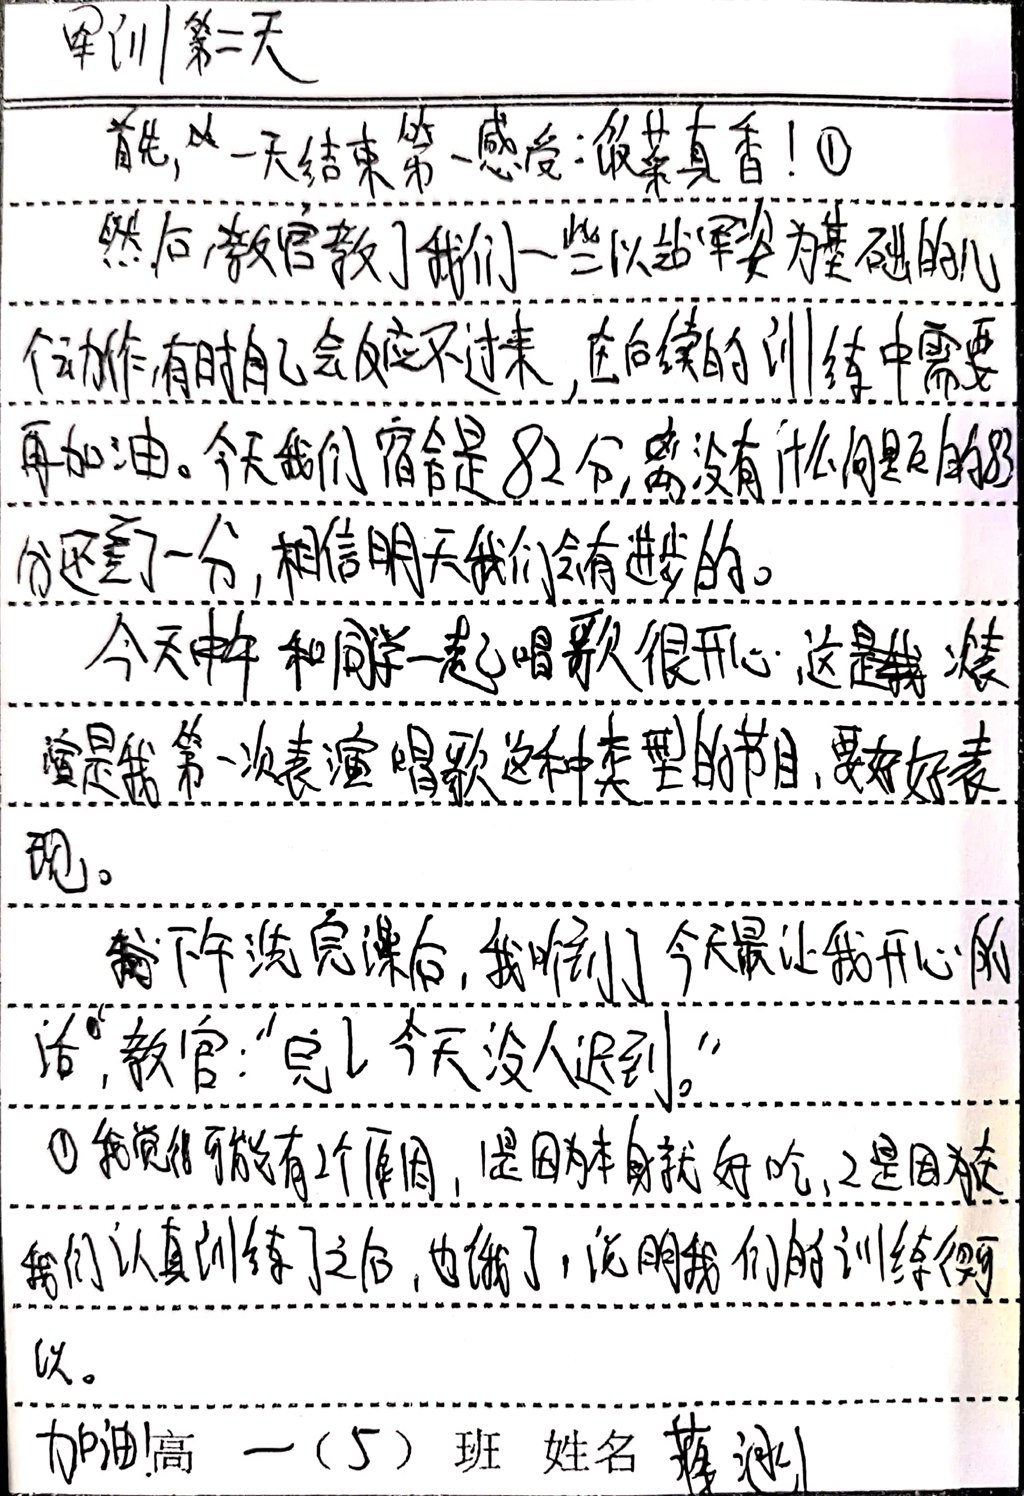 军训第二天
首先,一天结束第一感受:饭菜真香!①
然后,教官教了我们一些以站军姿为基础的几
个动作,有时自己会反应不过来,在后续的训练中需要
再加油。今天我们宿舍是82分,离没有什么问题的83
分还差了一分,相信明天我们会有进步的。
今天中午和同学一起唱歌很开心.这是我 次表
演是我第一次表演唱歌这种类型的节目,要好好表
现。
下午洗完澡后,我听到了今天最让我开心的
话",教官:"完了今天没人迟到。"
①我觉得可能有2个原因,1是因为本身就好吃,2是因为在
我们认真训练了之后,也饿了,说明我们的训练很可
以。
加油!高一(5)班 姓名